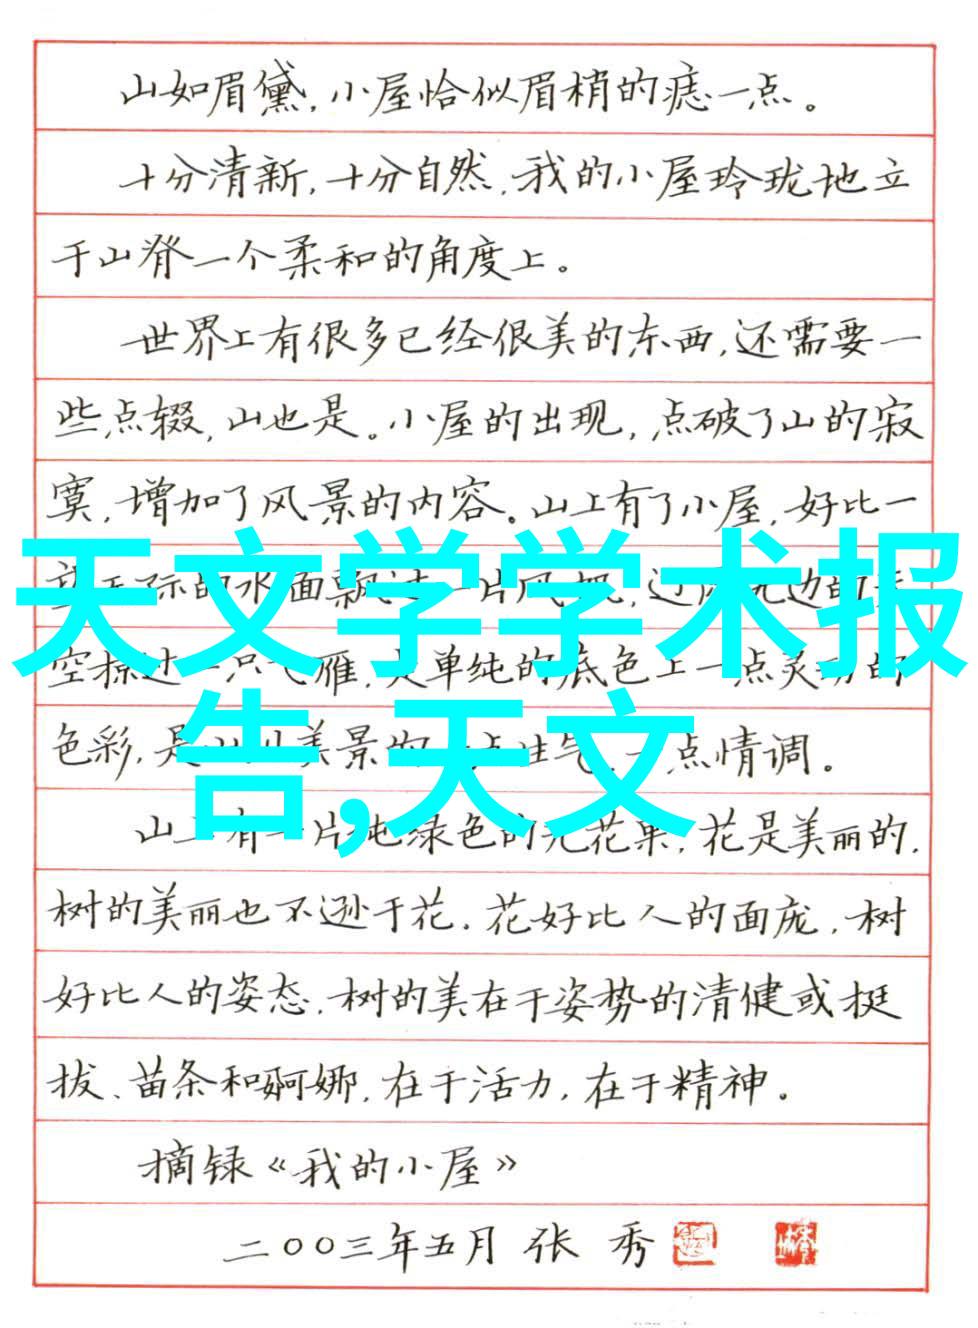 山如眉黛,小屋恰似眉梢的痣一点。
十分清新,十分自然,我的小屋玲珑地立
于山脊一个柔和的角度上。
世界上有很多已经很美的东西,还需要一
些点缀,山也是。小屋的出现,点破了山的寂
寞,增加了风景的内容。山上有了小屋,好比一
天文学学术报
的水面飘过一片风帆,
空掠过一只飞雁,是单纯的底色上一点灵动的
告,天文
色彩,是 美景的 生气,一点情调。
山上有一片纯绿色的无花果,花是美丽的,
树的美丽也不逊于花。花好比人的面庞,树
好比人的姿态。树的美在于姿势的清健或挺
拔、苗条和婀娜,在于活力,在于精神。
摘录《我的小屋》
二〇〇三年五月 张 秀